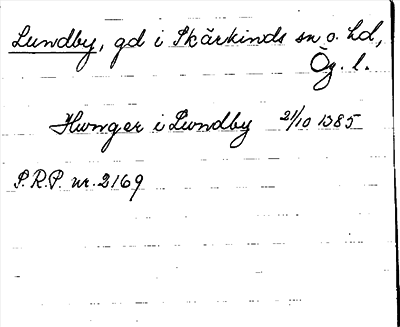 Lundby, gd i Skärkinds sn o. hd,
Ög. l.
Hwnger i Lwndby 21/10 1385
P.R.P. nr. 2169